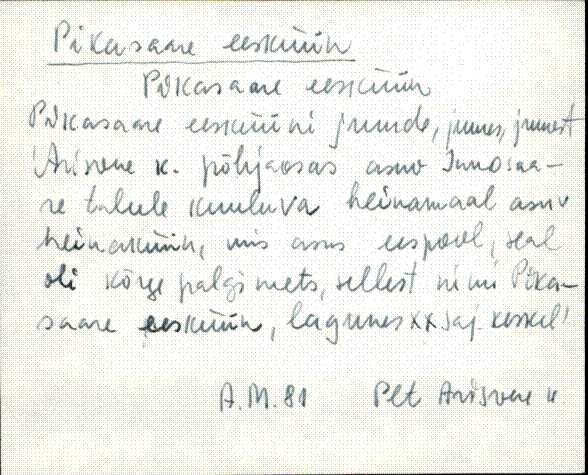 Pikasaare eesküün
Pikasaare eesküün
Pikasaare eesküüni juurde, juures, juurest
'Arisvere k. põhjaosas asuv Innosaa-
re talule kuuluva heinamaal asuv
heinaküün, mis asus eespool, seal
oli kõrge palgimets, sellest nimi Pika-
saare eesküün, lagunes XX saj. keskel'
A.M. 81 Plt Arisvere k